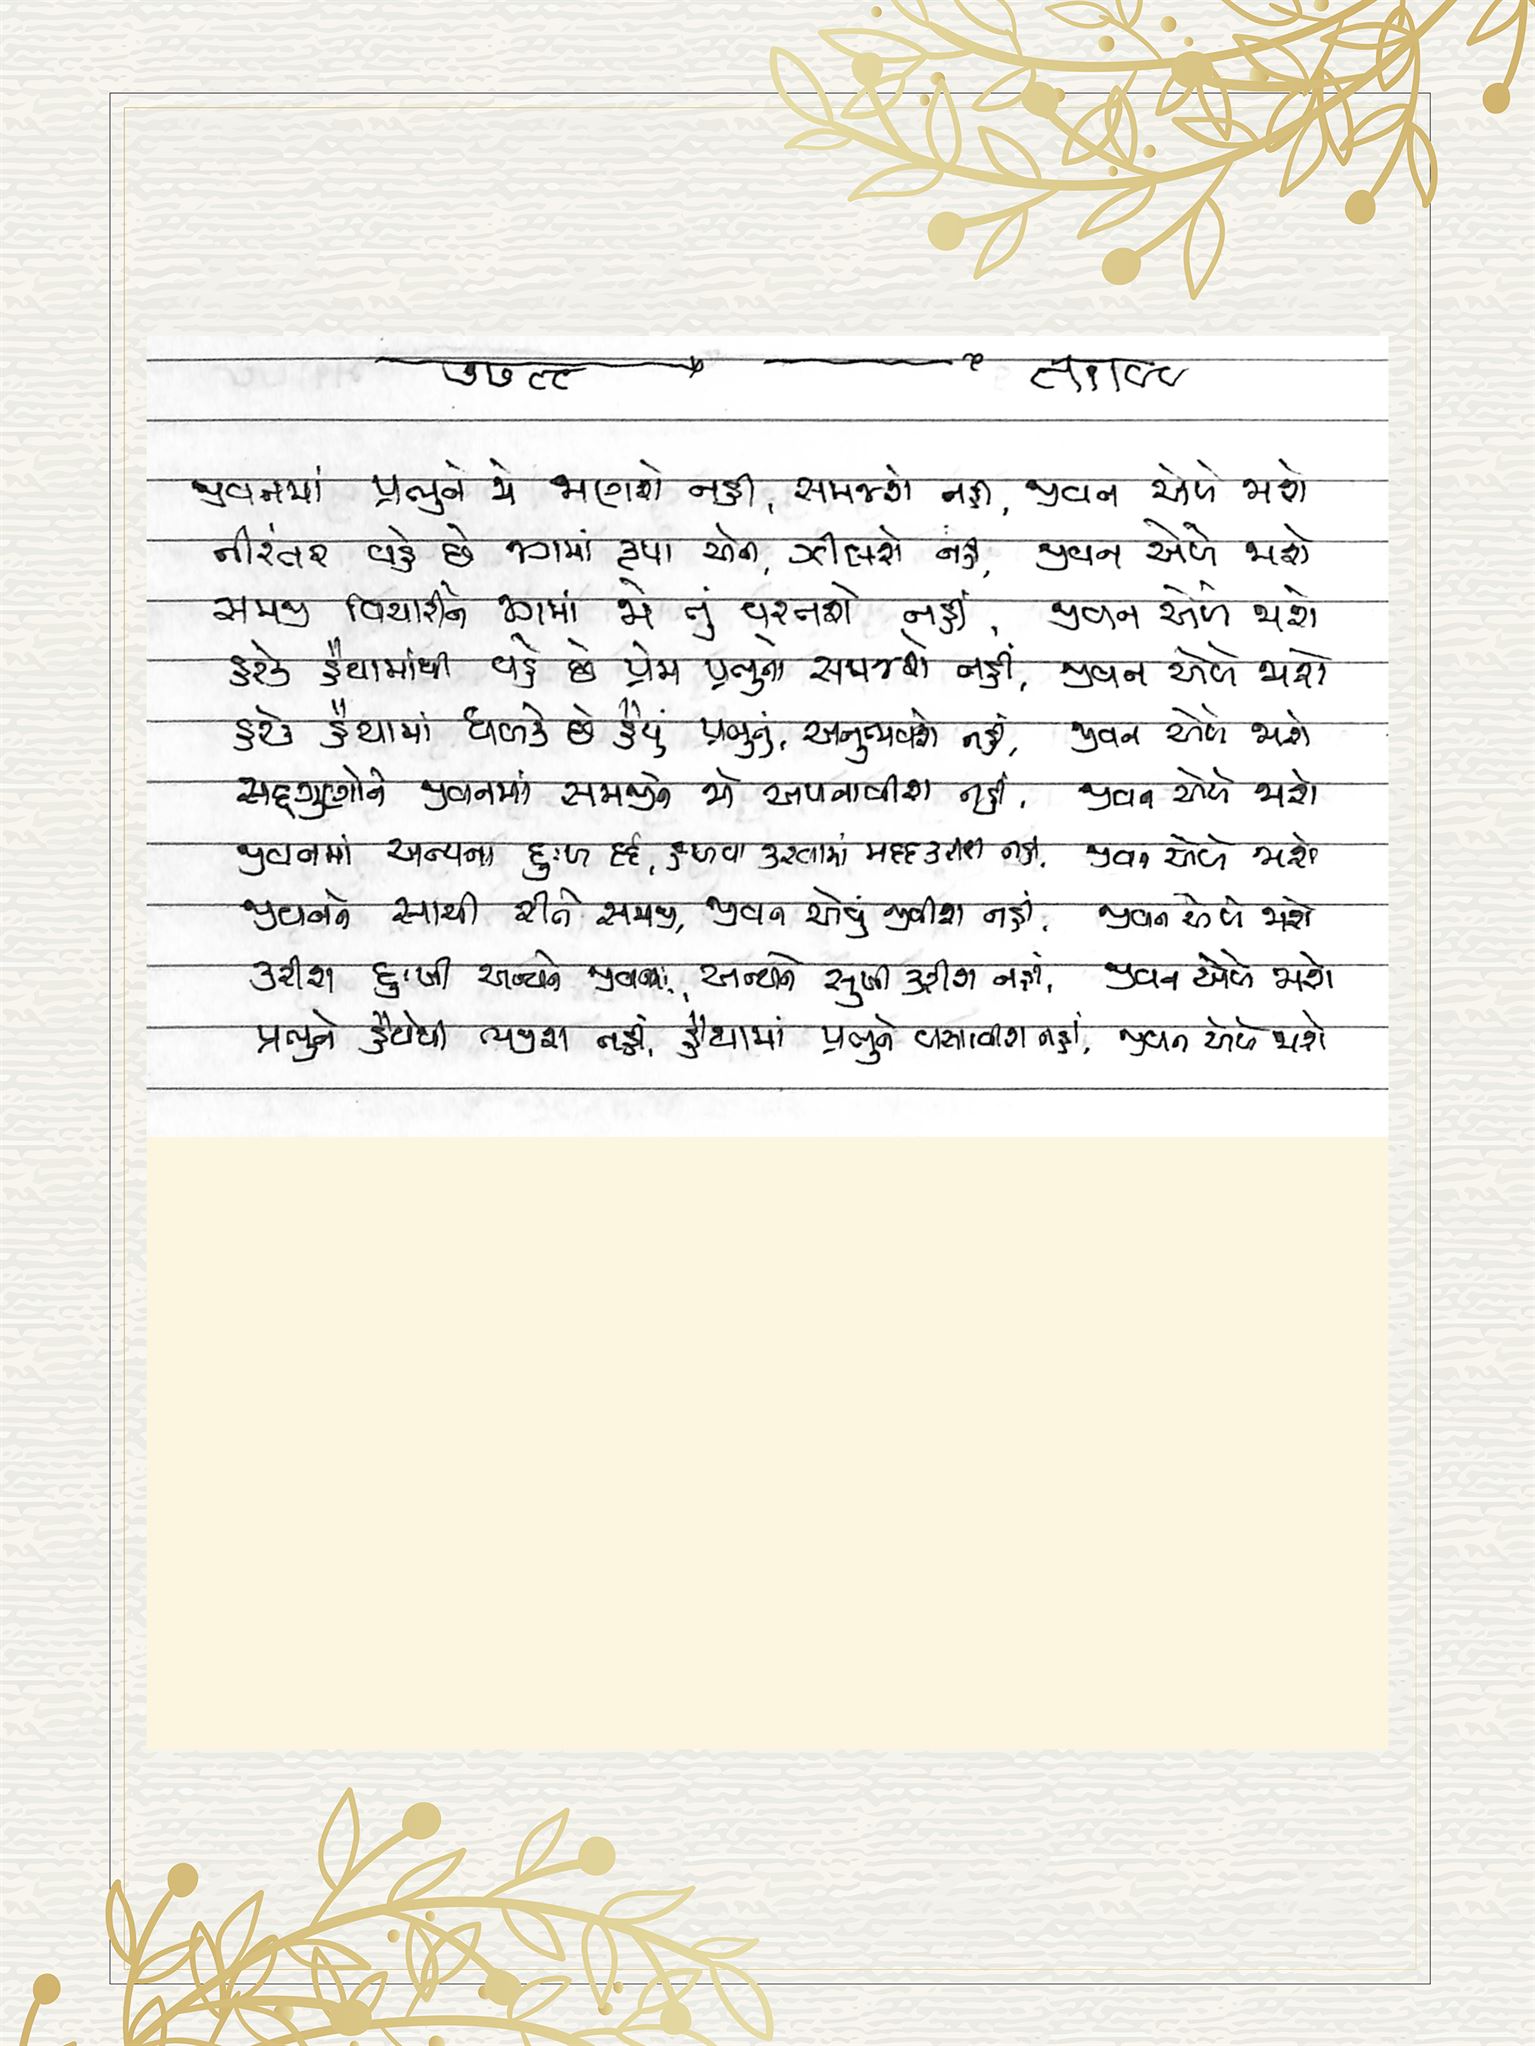 જીવનમાં પ્રભુને જો જાણશો નહી, સમજશો નહી, જીવન એળે જાશે
નીરંતર વહે છે જગમાં કૃપા એની, ઝીલશો નહી, જીવન એળે જાશે
સમજી વિચારીને જગમાં જો તું વરતશે નહીં, જીવન એળે જાશે
હરેક હૈયામાંથી વહે છે પ્રેમ પ્રભુનો સમજશે નહીં, જીવન એળે જાશે
હરેક હૈયામાં ધબકે છે હૈયું પ્રભુનું, અનુભવશે નહીં, જીવન એળે જાશે
સદ્ગુણોને જીવનમાં સમજીને જો અપનાવીશ નહીં, જીવન એળે જાશે
જીવનમાં અન્યના દુઃખ દર્દ, હળવા કરવામાં મદદ કરીશ નહીં, જીવન એળે જાશે
જીવનને સાચી રીતે સમજી, જીવન એવું જીવીશ નહીં, જીવન એળે જાશે
કરીશ દુઃખી અન્યને જીવનમાં, અન્યને સુખી કરીશ નહીં, જીવન એળે જાશે
પ્રભુને હૈયેથી ત્યજીશ નહીં, હૈયામાં પ્રભુને વસાવીશ નહીં, જીવન એળે જાશે